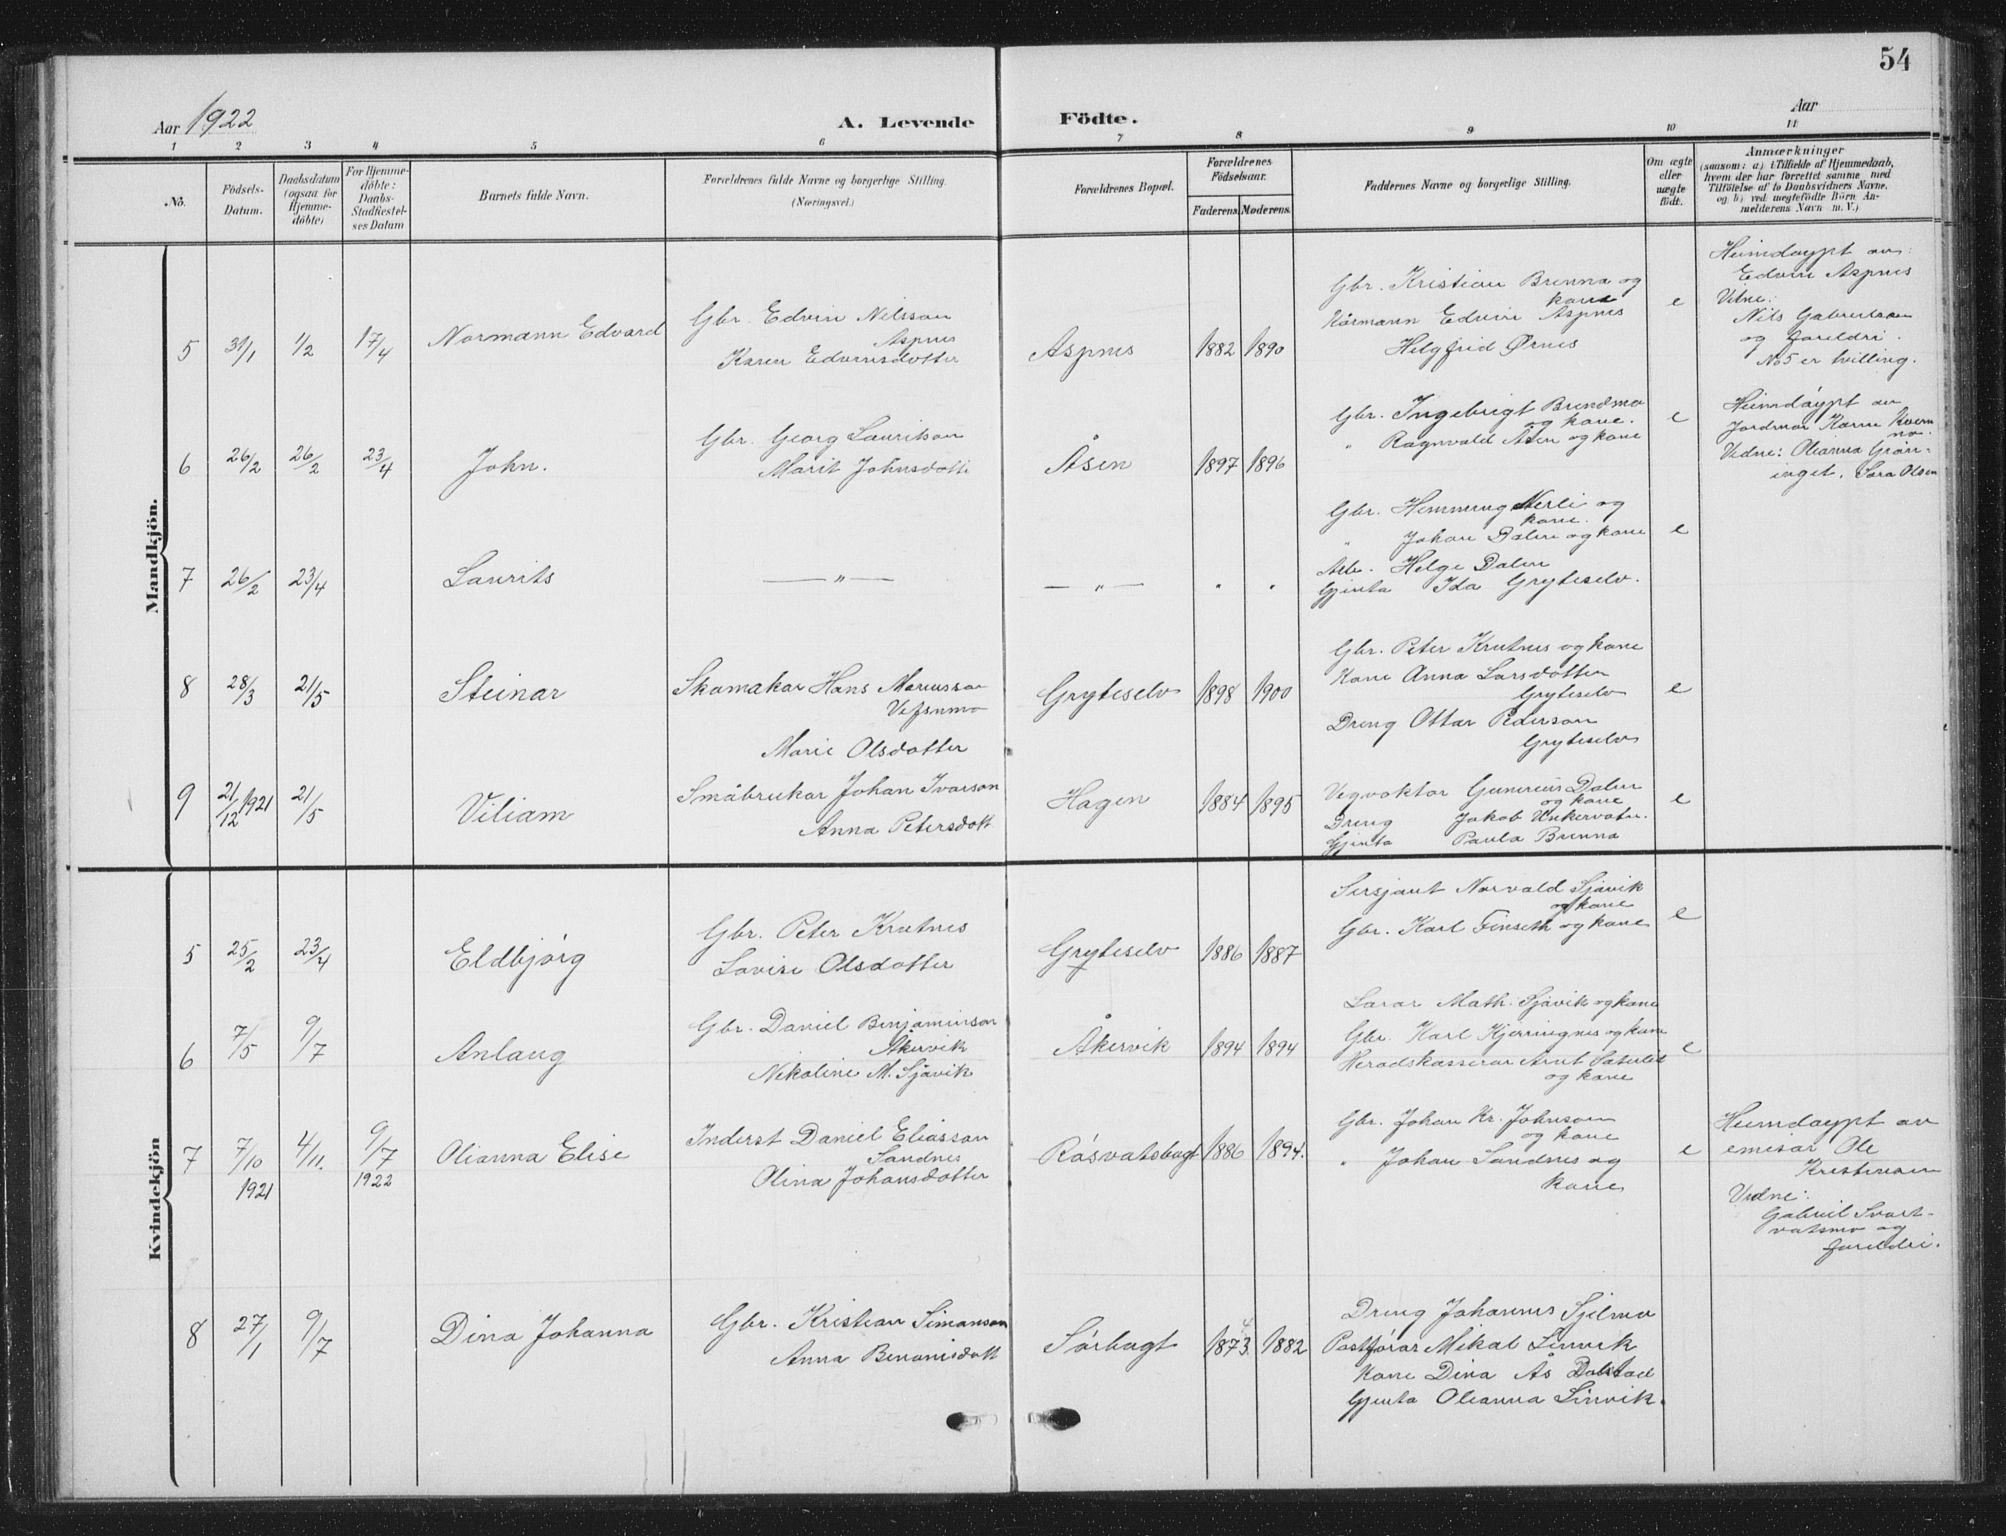 54
Aar 1922
A. Levende Födte.
Aar
1 2 3 4 5 6 7 8 9 10 11
No.
Födsels-
Datum.
Daabsdatum
(ogsaa for
Hjemme-
döbte)
For Hjemme-
döbte:
Daabs-
Stadfæstel-
ses Datum
Barnets fulde Navn.
Forældrenes fulde Navne og borgerlige Stilling.
(Næringsvei.)
Forældrenes Bopæl.
Forældrenes
Födselsaar.
Faderens. Moderens.
Faddernes Navne og borgerlige Stilling.
Om ægte
eller
uægte
födt.
Anmærkninger
(saasom: a) i Tilfælde af Hjemmedaab,
hvem der har forrettet samme med
Tilföielse af to Daabsvidners Navne,
og b) ved uægtefödte Börn An-
melderens Navn m. V.)
Mandkjön.
5 31/1 1/2 17/4 Normann Edvard
Gbr. Edvin Nilsson
Aspnes
Karen Edvinsdotter
Aspnes 1882 1890
Gbr. Kristian Brenna og
kone
Edvin Aspnes
Helgfrid Ørnes
e
Heimdøypt av:
Edvin Aspnes
Vitne:
Nils Gabrielsen
og foreldri.
No 5 er tvilling.
6 26/2 26/2 23/4 John.
Gbr. Georg Lauritson
Marit Johnsdotti
Åsen 1897 1896
Gbr. Ingebrigt Brendmo
og kone.
" Ragnvald Åsen og kone
e
Heimdøypt av
Jordmor Karen Kvem
mo.
Vidne: Olianna Grøn-
inget. Sara Olsen
7 26/2 23/4 Laurits
— " — — " — " "
Gbr. Hemming Nerli og
kone.
" Johan Dalen og kone
Arb. Helge Dalen
Gjenta Ida Gryteselv.
e
8 28/3 21/5 Steinar
Skomakar Hans Mariusson
Vefsnmo
Marie Olsdotter
Gryteselv 1898 1900
Gbr. Peter Krutnes og kone
Kone Anna Larsdotter
Gryteselv
Dreng Ottar Pederson
Gryteselv
e
9 21/12 1921 21/5 Viliam
Småbrukar Johan Ivarson
Anna Petersdott
Hagen 1884 1895
Vegvaktar Gunerius Dalen
og kone
Dreng Jakob Unkervatn.
Gjenta Paula Brenna
e
Kvindekjön
5 25/2 23/4 Eldbjørg
Gbr. Peter Krutnes
Lovise Olsdotter
Gryteselv 1886 1887
Sersjant Norvald Sjåvik
og kone
Gbr. Karl Finseth og kone
e
6 7/5 9/7 Anlaug
Gbr. Daniel Benjaminson
Åkervik
Nikoline M. Sjåvik
Åkervik 1894 1894
Lærar Math. Sjåvik og kone
Gbr. Karl Kjerringnes og kone
Heradskasserar Arnt
og kone
e
7 7/10 1921 4/11. 9/7 1922 Olianna Elise
Inderst Daniel Eliasson
Sandnes
Olina Johansdotter
Røsvatsbugt 1886 1894.
Gbr. Johan Kr. Johnson
og kone
" Johan Sandnes og
kone
e
Heimdøypt av
emisær Ole
Kristensen
Vidne:
Gabriel Svart-
vatsmo og
foreldri.
8 27/1 9/7 Dina Johanna
Gbr. Kristian Simonson
Anna Benonisdott
Sørbugt 1873. 4 1882
Dreng Johannes Sjelmo
Postførar Mikal Linvik
Kone Dina Ås Dalstad
Gjenta Olianna Linvik.